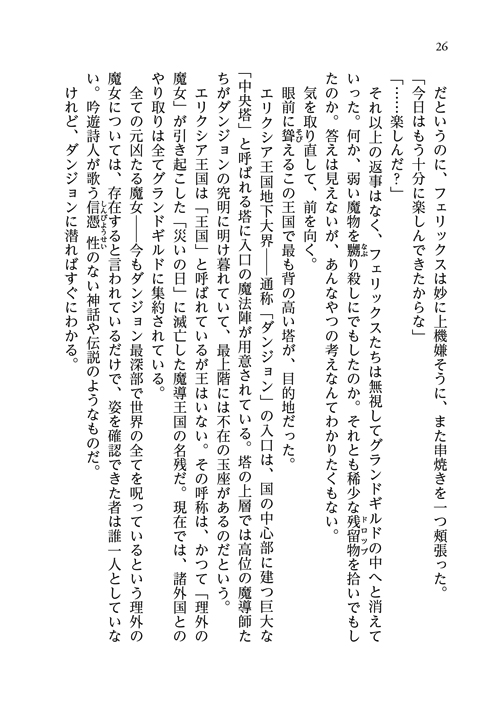 26
だというのに、フェリックスは妙に上機嫌そうに、また串焼きを一つ頬張った。
「今日はもう十分に楽しんできたからな」
「……楽しんだ?」
それ以上の返事はなく、フェリックスたちは無視してグランドギルドの中へと消えて
いった。何か、弱い魔物を嬲り殺しにでもしたのか。それとも稀少な残留物を拾いでもし
たのか。答えは見えないが、あんなやつの考えなんてわかりたくもない。
気を取り直して、前を向く。
眼前に聳えるこの王国で最も背の高い塔が、目的地だった。
エリクシア王国地下大界――通称「ダンジョン」の入口は、国の中心部に建つ巨大な
「中央塔」と呼ばれる塔に入口の魔法陣が用意されている。塔の上層では高位の魔導師た
ちがダンジョンの究明に明け暮れていて、最上階には不在の玉座があるのだという。
エリクシア王国は「王国」と呼ばれているが王はいない。その呼称は、かつて「理外の
魔女」が引き起こした「災いの日」に滅亡した魔導王国の名残だ。現在では、諸外国との
やり取りは全てグランドギルドに集約されている。
全ての元凶たる魔女――今もダンジョン最深部で世界の全てを呪っているという理外の
魔女については、存在すると言われているだけで、姿を確認できた者は誰一人としていな
い。吟遊詩人が歌う信憑性のない神話や伝説のようなものだ。
けれど、ダンジョンに潜ればすぐにわかる。